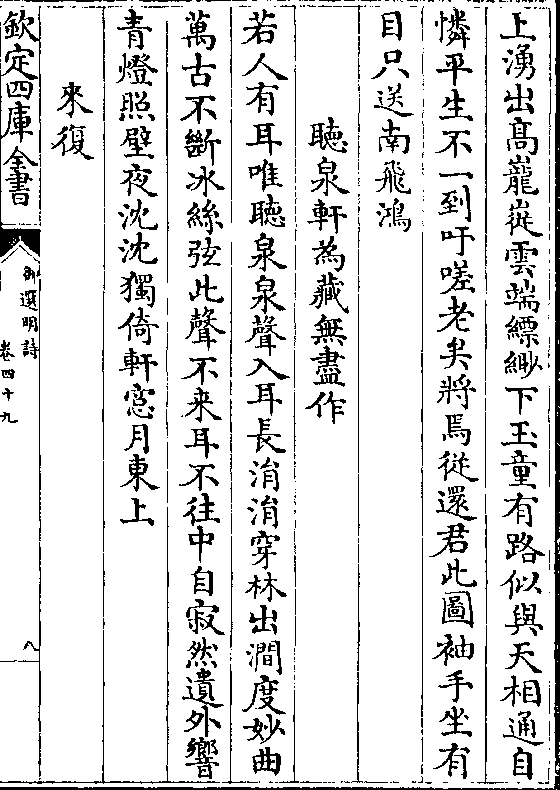 上湧出髙巃嵸雲端縹緲下玉童有路似與天相通自
憐平生不一到吁嗟老矣將焉從還君此圖袖手坐有
目只送南飛鴻
聽泉軒為藏無盡作
若人有耳唯聽泉泉聲入耳長涓涓穿林出澗度妙曲
萬古不斷冰絲弦此聲不来耳不往中自寂然遺外響
青燈照壁夜沈沈獨倚軒窓月東上
來復
欽定四庫全書
御選明詩
卷四十九
八